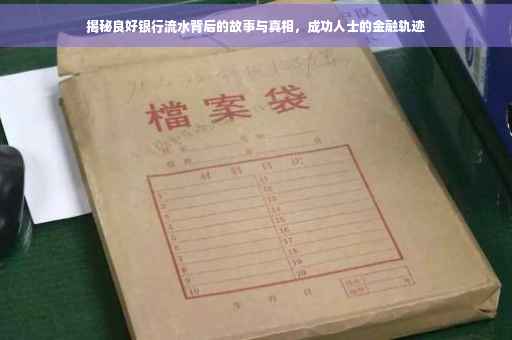 揭秘良好银行流水背后的故事与真相，成功人士的金融轨迹
檔案袋
材料目次
1
2
3
4
5
6
7
8
9
10
11
12
13
14
15
16
17
18
19
20
年 月 日